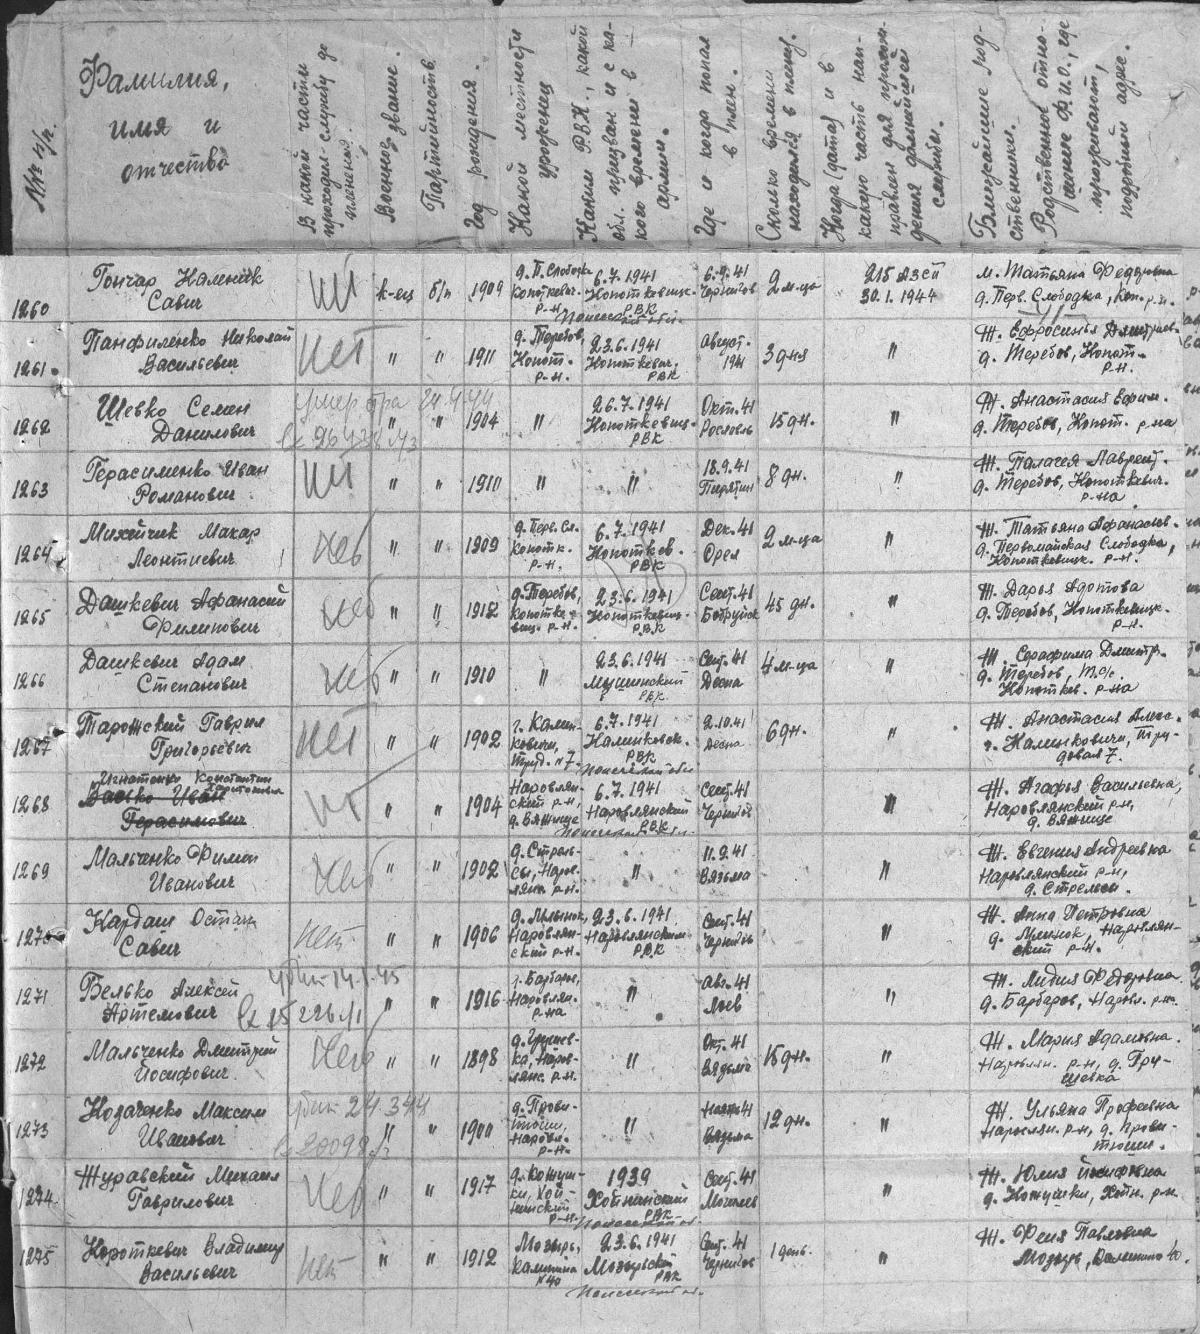 №№ п/п.
Фамилия,
имя и
отчество
В какой части
проходил службу до
пленения.
Военное звание.
Партийность
Год рождения.
Какой местности
уроженец
Каким Р.В.К., какой
обл. призван и с ка-
кого времени в
армии.
Где и когда попал
в плен.
Сколько времени
находился в плену.
Когда (дата) и в
какую часть нап-
правлен для прохож-
дения дальнейшей
службы.
Ближайшие род-
ственники.
Родственное отно-
шение Ф.И.О., где
проживают,
подробный адрес.
1260
Гончар
Савич
к-ец
б/п
1909
д. П. Слобода
Копоткевич.
р-н.
6.7.1941
Копоткевицк.
РВК
6.9.41
Чернигов
2 м-ца
215 АЗСП
30.1.1944
м. Татьяна Федоровна
д. Перв. Слободка, Коп. р-н.
1261
Панфиленко Николай
Васильевич
нет
"
"
1911
д. Теребов,
Копот.
р-н.
23.6.1941
Копоткевич.
РВК
Август.
1941
3 дня
"
Ж. Ефросинья Дмитриев.
д. Теребов, Копот.
р-н.
1262
Шевко Семен
Данилович
умер
"
1904
"
26.7.1941
Копоткевиц.
РВК
Окт. 41
Рославль
15 дн.
"
Ж. Анастасия Ефим.
д. Теребов, Копот. р-на
1263
Герасименко Иван
Романович
"
"
1910
"
"
18.9.41
Пирятин
8 дн.
"
Ж. Палагея Лаврент.
д. Теребов, Копоткевич.
р-на
1264
Михейчик Макар
Леонтиевич
"
"
1909
д. Перв. Сл.
Копотк.
р-н.
6.7.1941
Копоткев.
РВК
Дек. 41
Орел
2 м-ца
"
Ж. Татьяна Афанасьев.
д. Первомайская Слободка,
Копоткевицк. р-н.
1265
Дашкевич Афанасий
Филипович
"
"
1912
д. Теребов,
Копотке-
виц. р-н.
23.6.1941
Копоткевиц.
РВК
Сент. 41
Бобруйск
45 дн.
"
Ж. Дарья
д. Теребов, Копоткевицк.
р-н.
1266
Дашкевич Адам
Степанович
"
"
1910
"
23.6.1941
РВК
Сент. 41
Десна
4 м-ца
"
Ж. Серафима Дмитр.
д. Теребов,
Копоткев. р-на
1267
Тарожский Гаврил
Григорьевич
нет
"
"
1902
г. Калин-
ковичи,
Труд. №7.
6.7.1941
Калинковск.
РВК
2.10.41
Десна
6 дн.
"
Ж. Анастасия Алекс.
г. Калинковичи, Тру-
довая 7.
1268
Игнатенко Константин
Васько Иван
Герасимович
"
"
1904
Наровлян-
ский р-н,
д. Вяжище
6.7.1941
Наровлянский
РВК
Сент. 41
Чернигов
"
Ж. Агафья Васильевна,
Наровлянский р-н,
д. Вяжище
1269
Мальченко Филип
Иванович
"
"
1902
д. Стрель-
сы, Наров-
лянк. р-н.
"
11.9.41
Вязьма
"
Ж. Евгения Андреевна
Наровлянский р-н,
д. Стрельсы.
1270
Кардаш Остап
Савич
нет
"
"
1906
Наровлян-
ский р-н.
23.6.1941
Наровлянским
РВК
Сент. 41
Чернигов
"
Ж. Анна Петровна
д. Млынок, Наровлян-
ский р-н.
1271
Белько Алексей
Артемович
убит 14.1.45
"
"
1916
г. Барбаров,
Наровлян.
р-на
"
Авг. 41
Лоев
"
Ж. Лидия Федоровна
д. Барбаров, Наровл. р-на.
1272
Мальченко Дмитрий
Иосифович
"
"
1898
д. Грушев-
ка, Наров-
лянс. р-н.
"
Окт. 41
Вязьма
15 дн.
"
Ж. Мария Адамовна
Наровлян. р-н, д. Гру-
шевка
1273
Козаченко Максим
Иванович
убит 24.3.44
"
"
1900
Наровл.
р-н.
"
Вязьма
12 дн.
"
Ж. Ульяна
Наровлян. р-н,
1274
Журавский Михаил
Гаврилович
"
"
1917
д. Кожуш-
ки, Хой-
никский
р-н.
1939
Хойникский
РВК
Сент. 41
Могилев
"
Ж. Юлия Иосифовна
д. Кожушки, Хойн. р-н.
1275
Короткевич Владимир
Васильевич
нет
"
"
1912
Мозырь,
Калинина
№40
23.6.1941
Мозырский
РВК
Сент. 41
Чернигов
1 день.
"
Ж. Феня Павловна
Мозырь, Калинина 40.